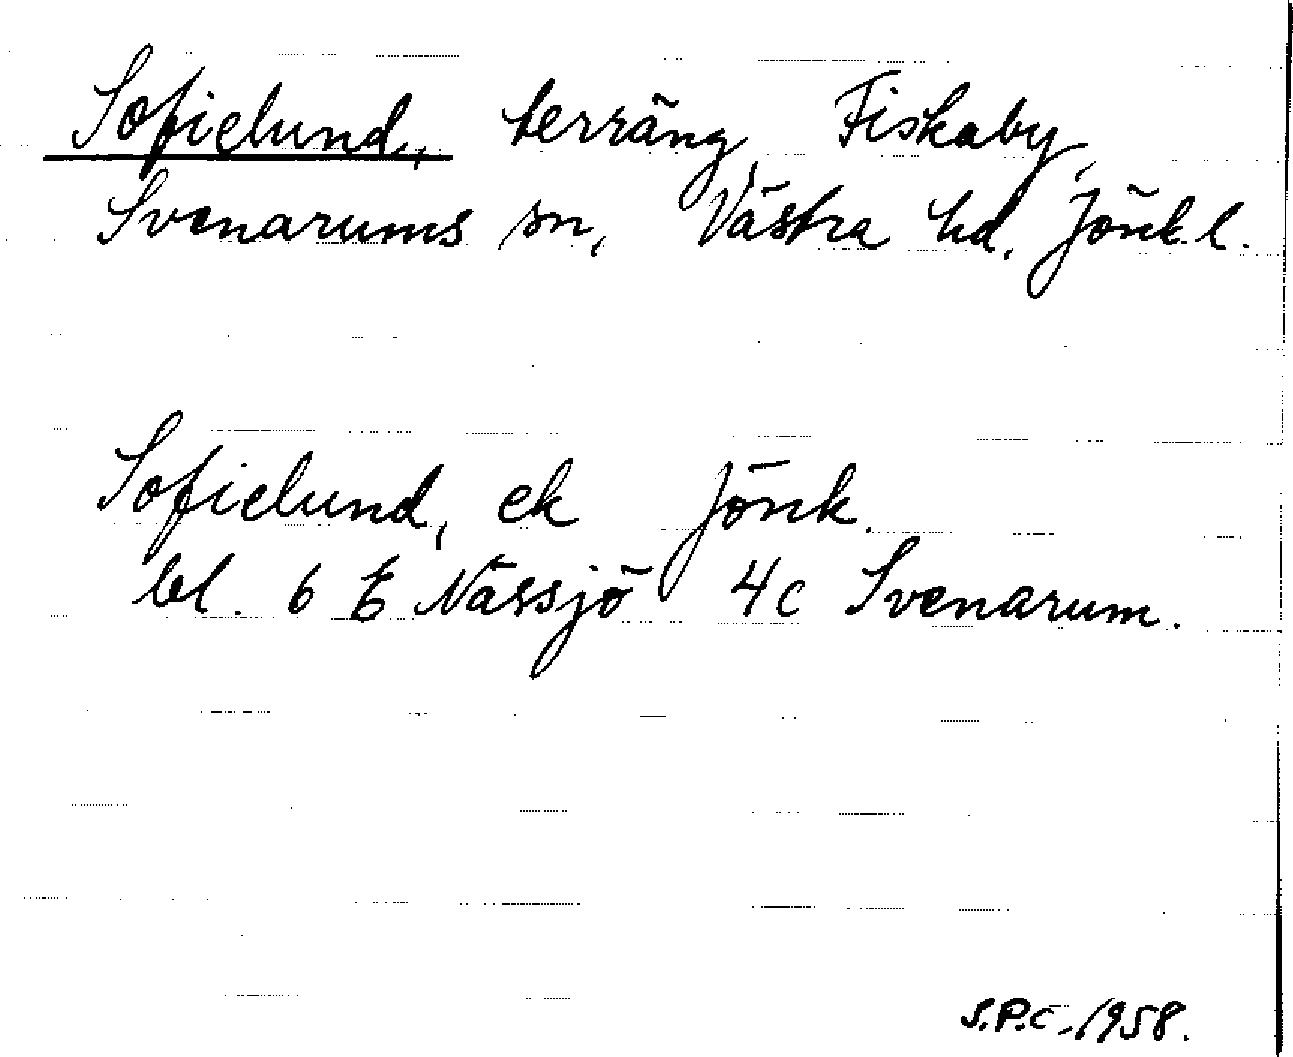 Sofielund, terräng, Fiskaby,
Svenarums sn, Västra hd. Jönk.l.
Sofielund, ek Jönk.
bl. 6 E Nässjö 4c Svenarum.
S.P.C. 1958.